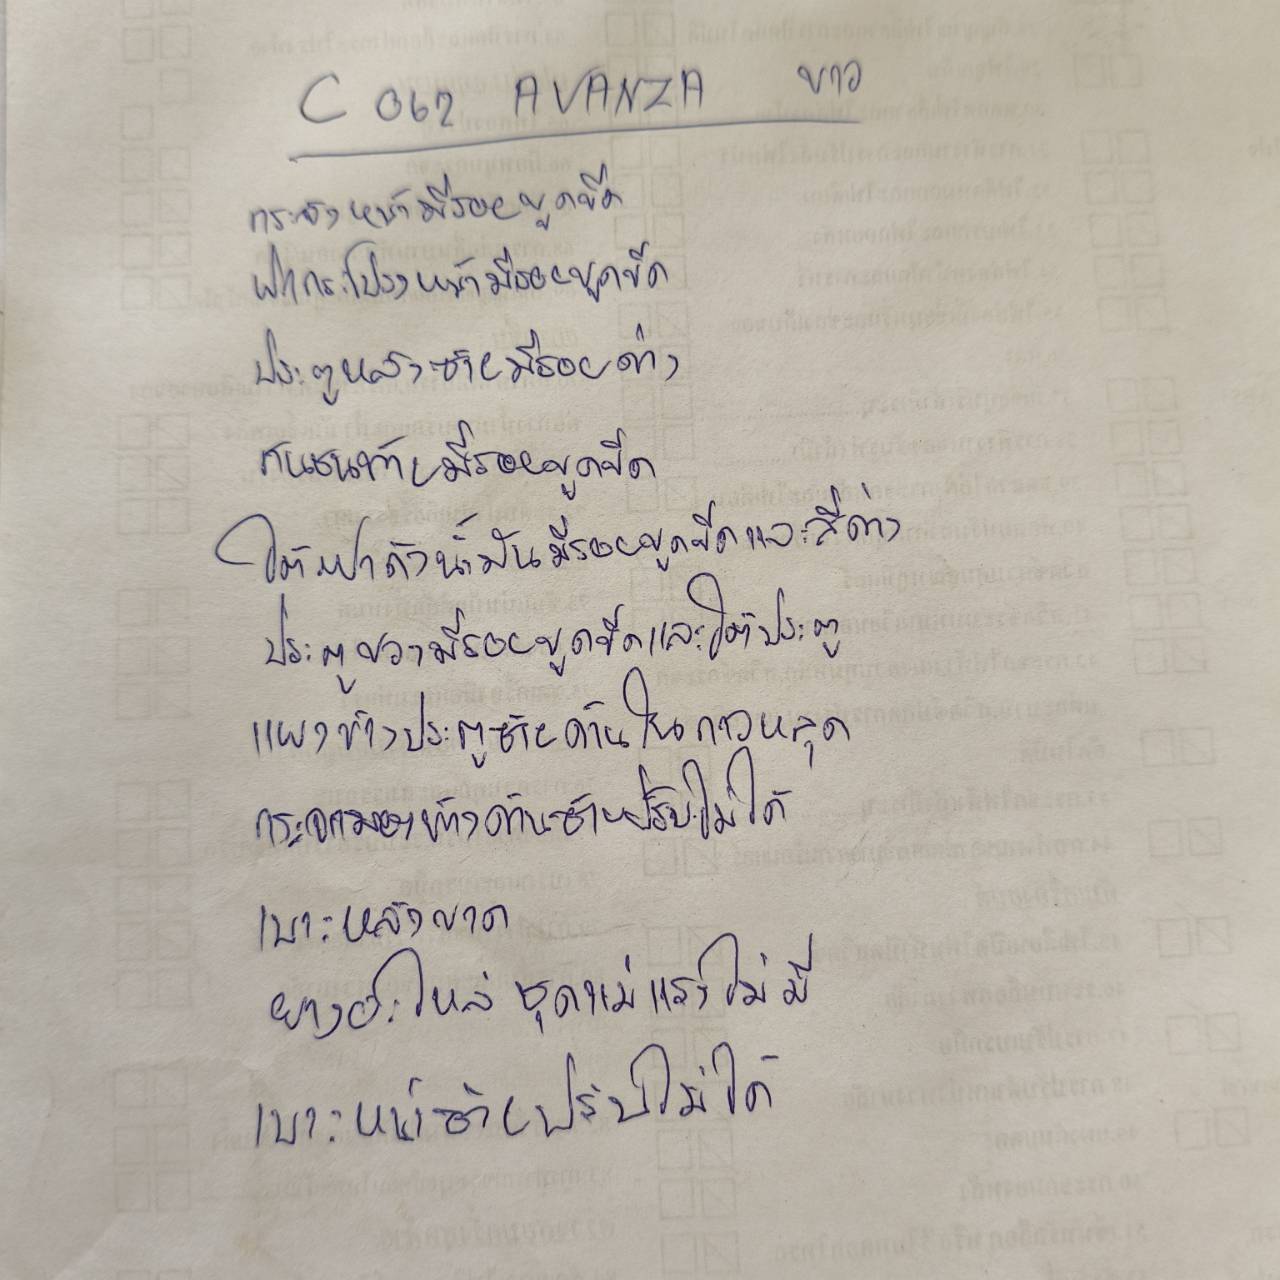 C 062 AVANZA ขาว
กระจังหน้ามีรอยขูดขีด
ฝากระโปรงหน้ามีรอยขูดขีด
ประตูหลังซ้ายมีรอยด่าง
กันชนท้ายมีรอยขูดขีด
ใต้ฝาถังน้ำมันมีรอยขูดขีดและสีด่าง
ประตูขวามีรอยขูดขีดและใต้ประตู
แผงข้างประตูซ้ายด้านในกาวหลุด
กระจกมองข้างด้านซ้ายปรับไม่ได้
เบาะหลังขาด
ยางอะไหล่ ชุดแม่แรงไม่มี
เบาะหน้าซ้ายปรับไม่ได้